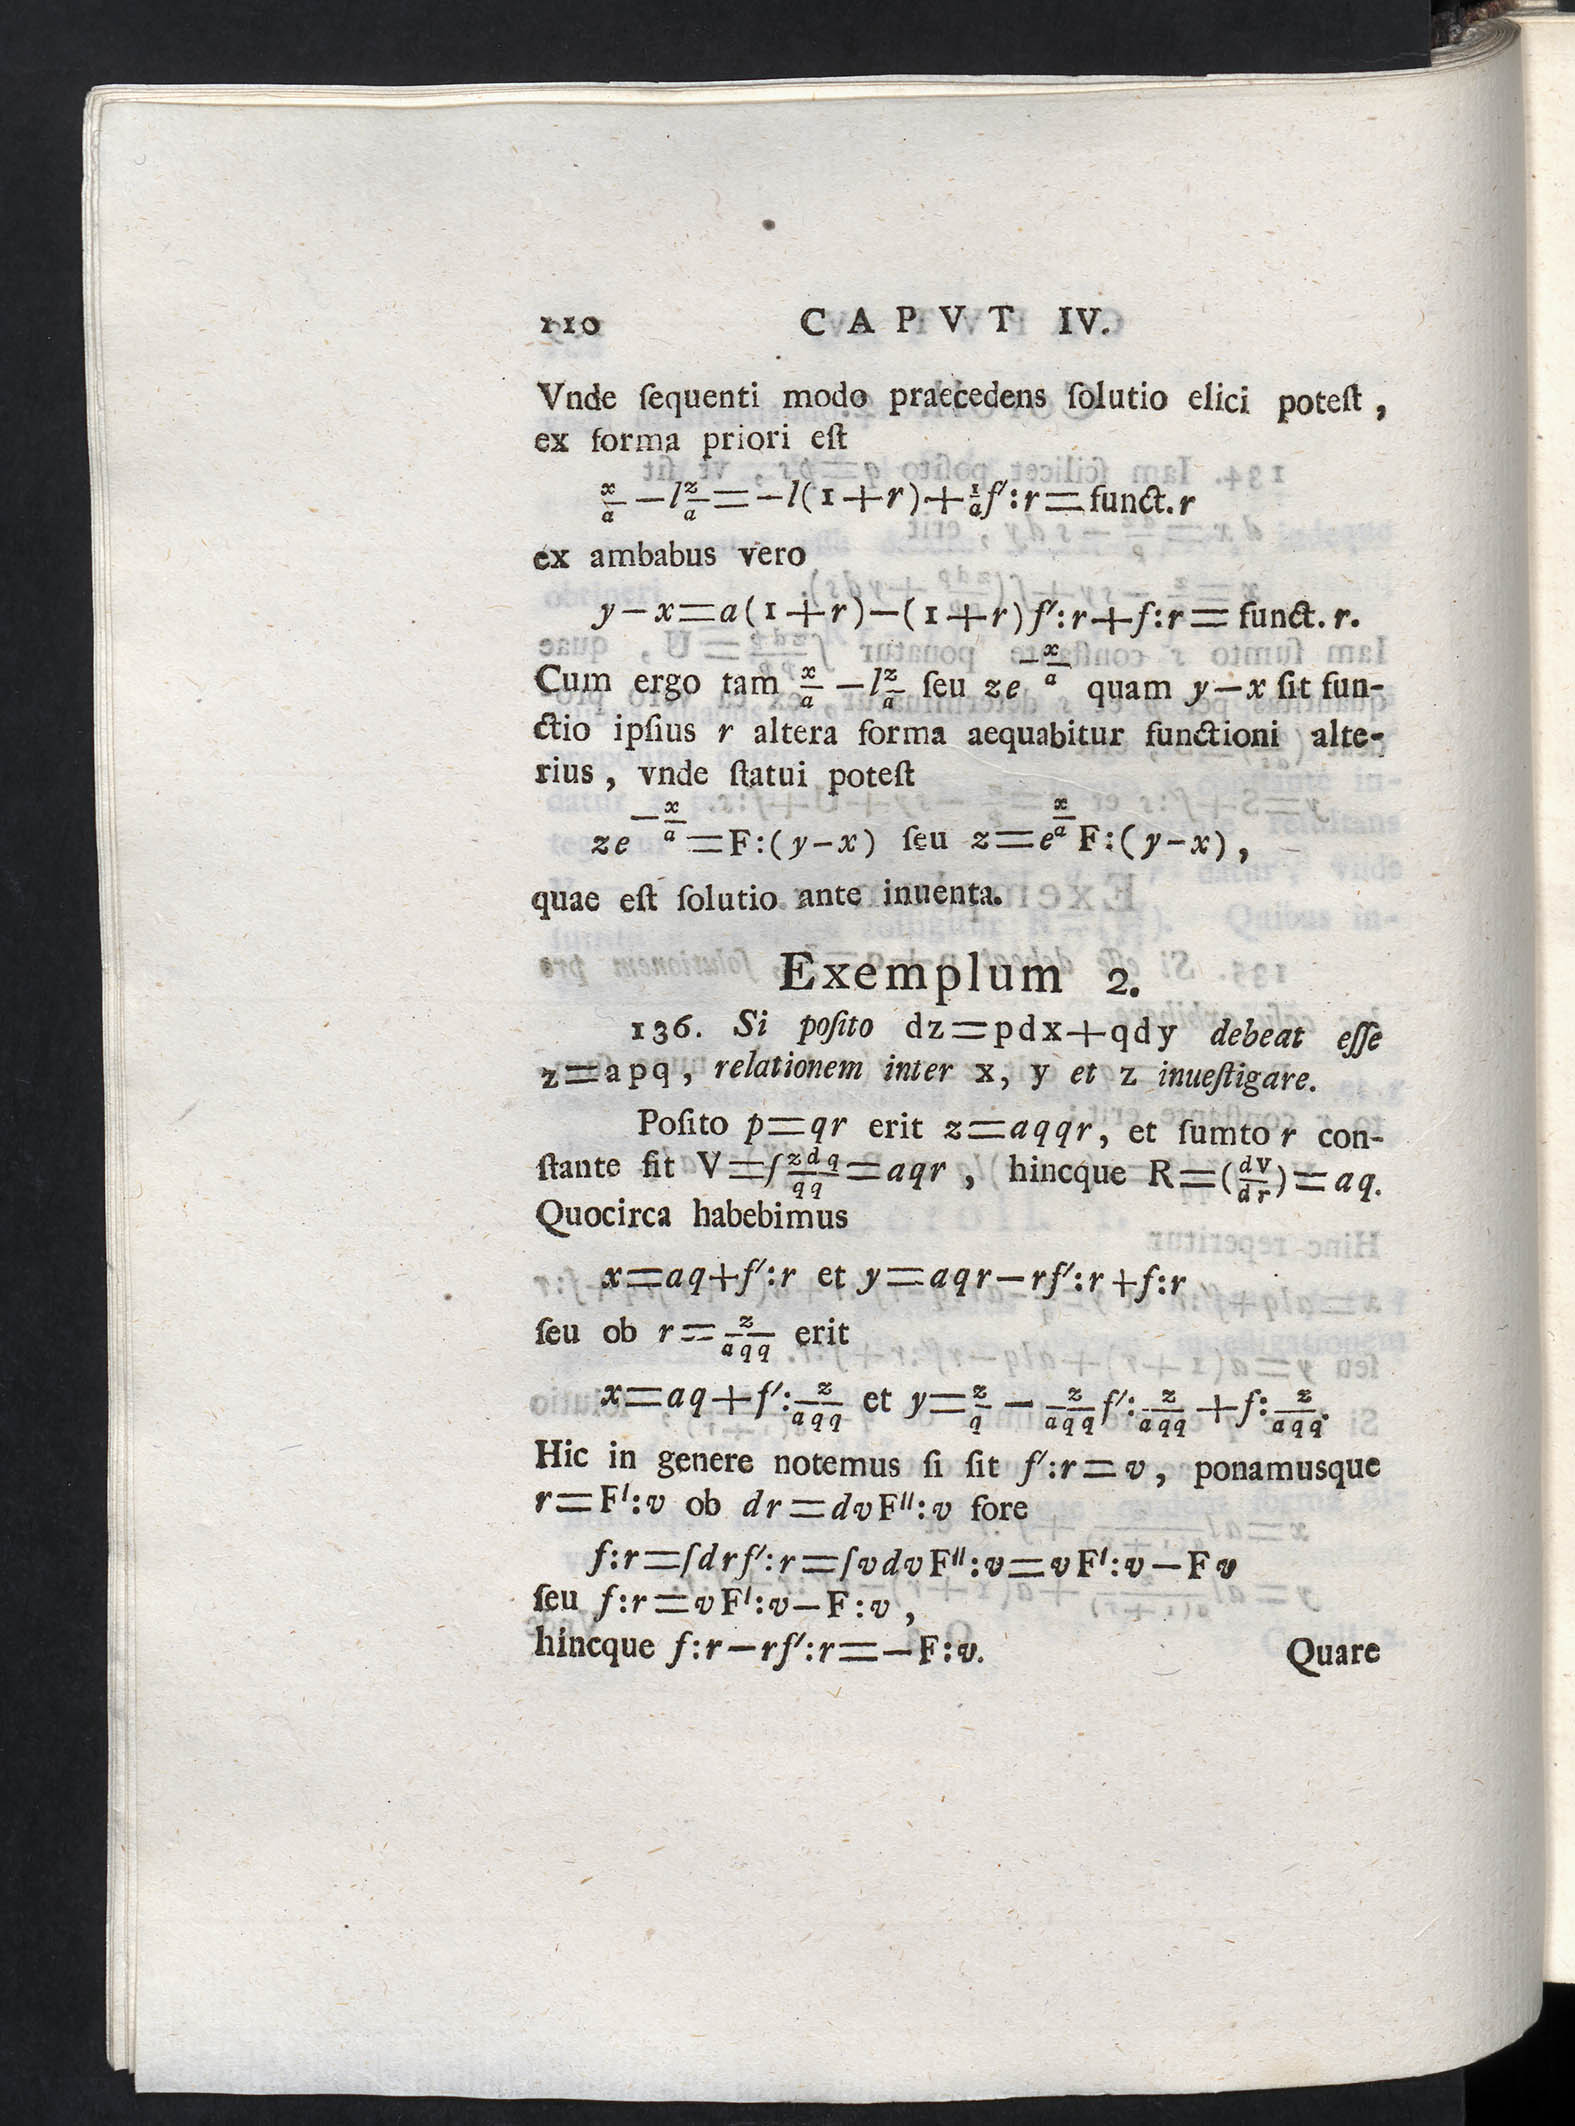 110 CAPVT IV.
Vnde ſequenti modo praecedens ſolutio elici poteſt,
ex forma priori eſt
x/a − l z/a = − l(1+r) + 1/a f′:r = funct. r
ex ambabus vero
y−x = a(1+r) − (1+r) f′:r + f:r = funct. r.
Cum ergo tam x/a − l z/a ſeu z e^{−x/a} quam y−x ſit fun-
ctio ipſius r altera forma aequabitur functioni alte-
rius, vnde ſtatui poteſt
z e^{−x/a} = F:(y−x) ſeu z = e^{x/a} F:(y−x),
quae eſt ſolutio ante inuenta.
Exemplum 2.
136. Si poſito dz=pdx+qdy debeat eſſe
z=apq, relationem inter x, y et z inueſtigare.
Poſito p=qr erit z=aqqr, et ſumto r con-
ſtante fit V=∫ zdq/qq = aqr, hincque R=(dV/dr)=aq.
Quocirca habebimus
x=aq+f′:r et y=aqr−rf′:r+f:r
ſeu ob r= z/aqq erit
x=aq+f′: z/aqq et y= z/q − z/aqq f′: z/aqq + f: z/aqq.
Hic in genere notemus ſi ſit f′:r=v, ponamusque
r=F′:v ob dr=dvF″:v fore
f:r=∫drf′:r=∫vdvF″:v=vF′:v−Fv
ſeu f:r=vF′:v−F:v,
hincque f:r−rf′:r=−F:v. Quare